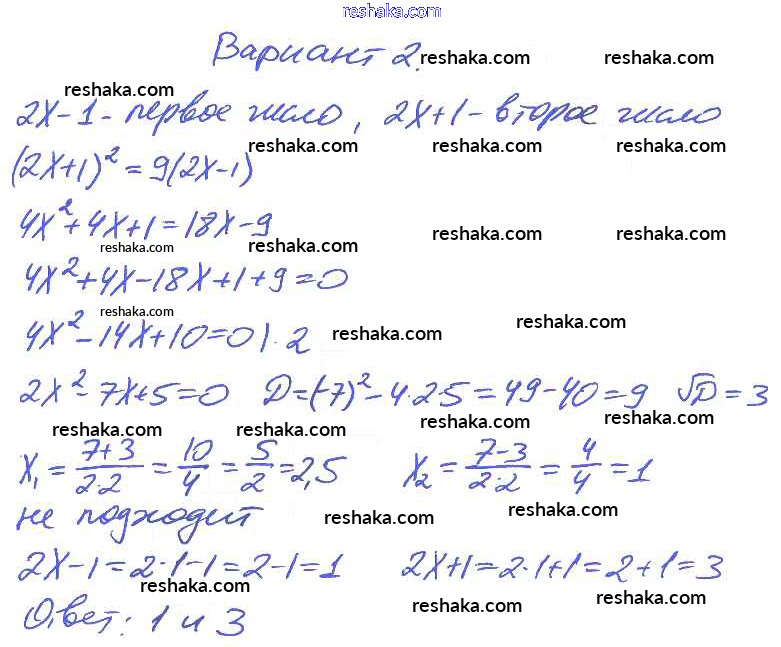 reshaka.com
Вариант 2. reshaka.com reshaka.com
reshaka.com
2x-1 - первое число, 2x+1 - второе число
reshaka.com reshaka.com reshaka.com
(2x+1)² = 9(2x-1)
4x²+4x+1=18x-9
reshaka.com reshaka.com reshaka.com reshaka.com
4x²+4x-18x+1+9=0
reshaka.com reshaka.com
4x²-14x+10=0 |·2 reshaka.com
2x²-7x+5=0 D=(-7)²-4·2·5=49-40=9 √D=3
reshaka.com reshaka.com reshaka.com reshaka.com
x₁ = (7+3)/(2·2) = 10/4 = 5/2 = 2,5 x₂ = (7-3)/(2·2) = 4/4 = 1
не подходит reshaka.com reshaka.com
2x-1=2·1-1=2-1=1 2x+1=2·1+1=2+1=3
reshaka.com reshaka.com reshaka.com
Ответ: 1 и 3